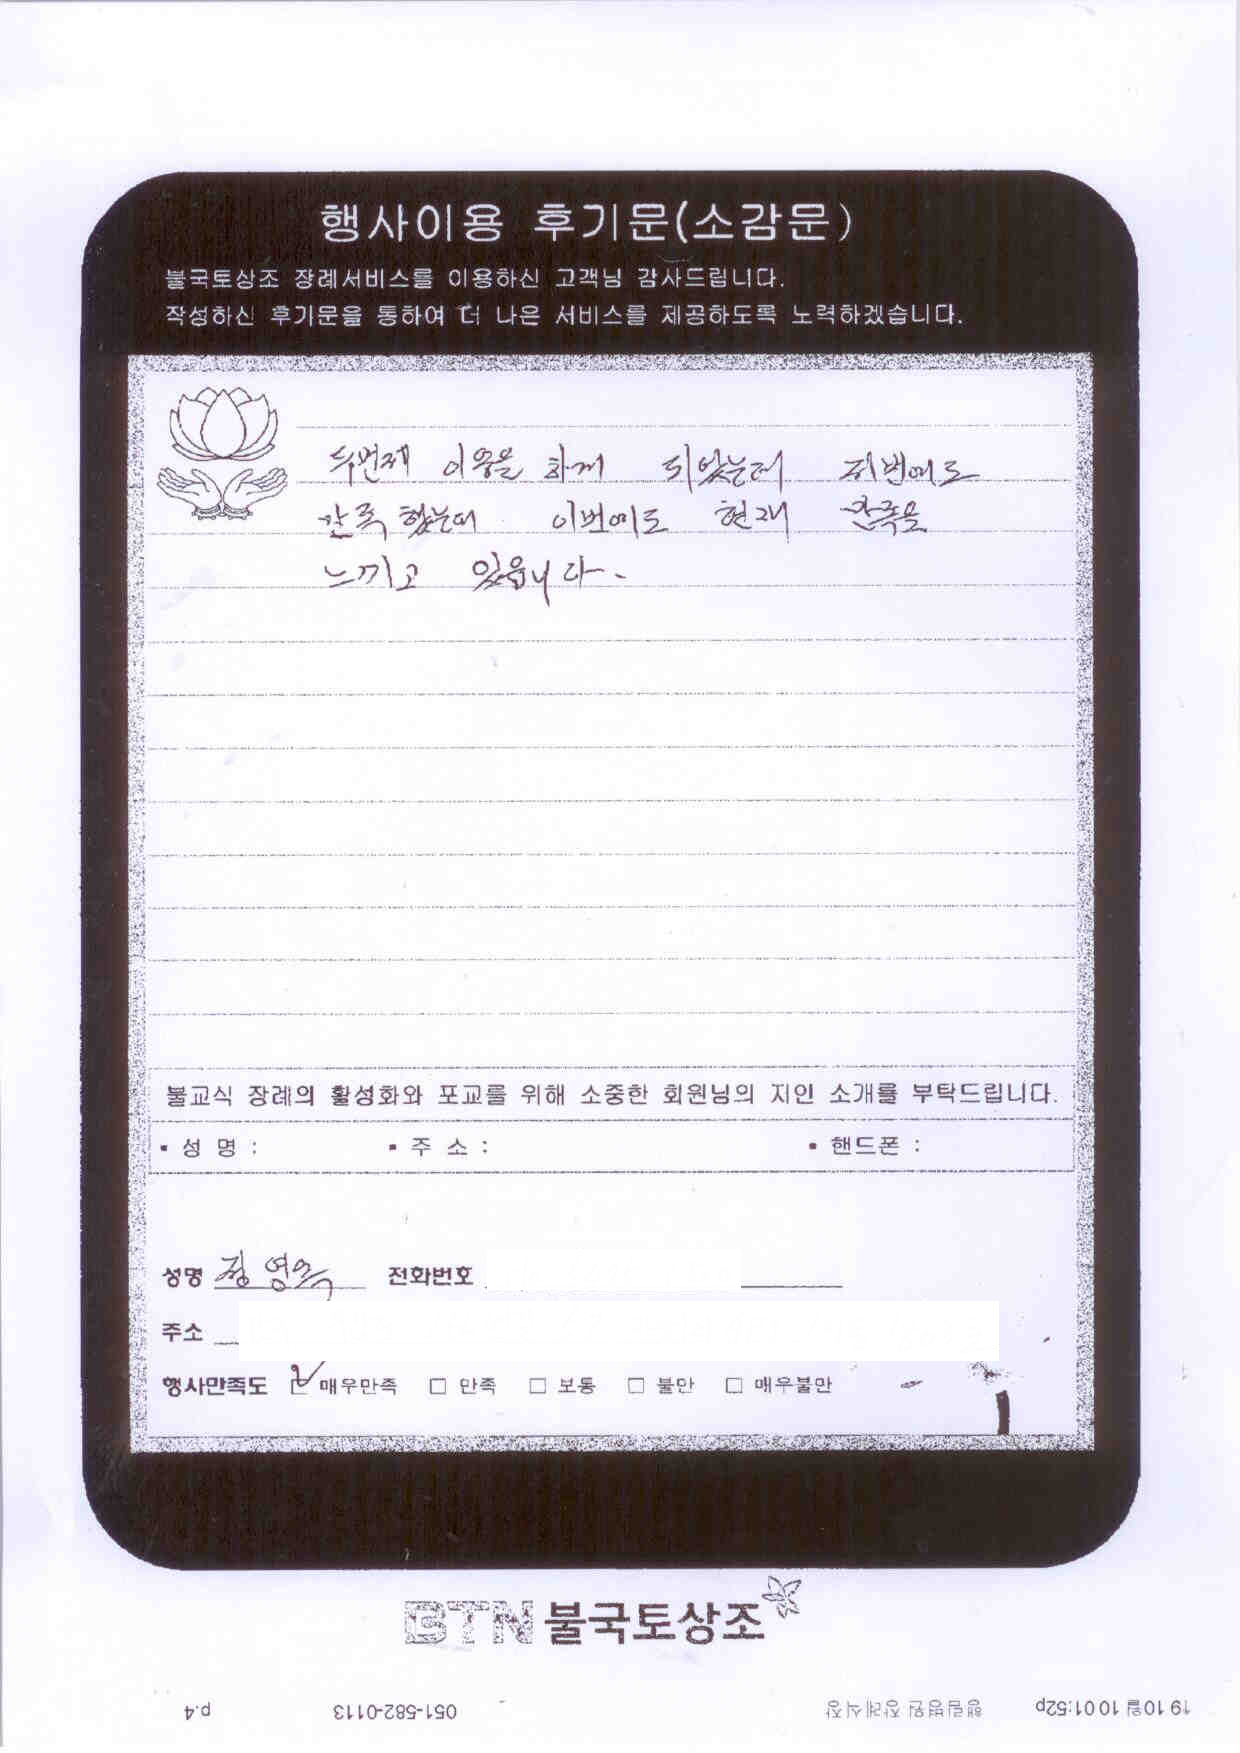 행사이용 후기문(소감문)
불국토상조 장례서비스를 이용하신 고객님 감사드립니다.
작성하신 후기문을 통하여 더 나은 서비스를 제공하도록 노력하겠습니다.
두번째 이용을 하게 되었는데 저번에도
만족했는데 이번에도 현재 만족을
느끼고 있읍니다.
불교식 장례의 활성화와 포교를 위해 소중한 회원님의 지인 소개를 부탁드립니다.
▪ 성 명 : ▪ 주 소 : ▪ 핸드폰 :
성명 정영옥 전화번호
주소
행사만족도 ☑ 매우만족 □ 만족 □ 보통 □ 불만 □ 매우불만
BTN 불국토상조
19 10월 10 01:52p 행림병원 장례식장 051-582-0113 p.4